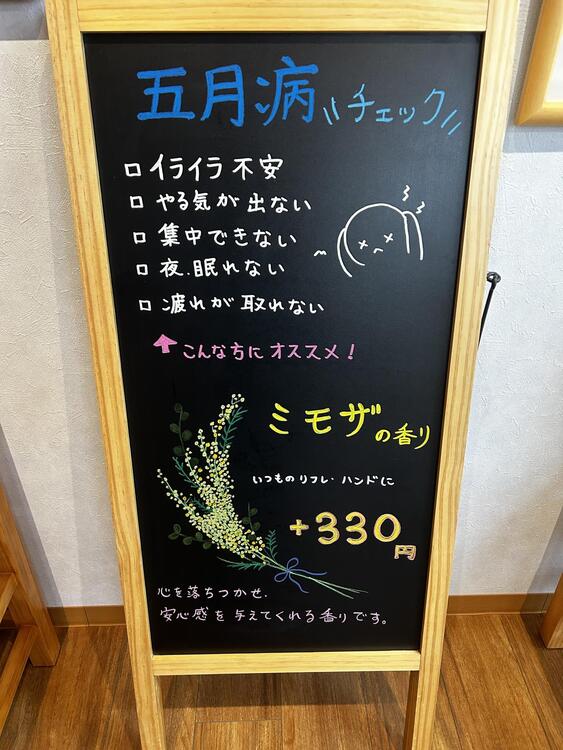 五月病 チェック
□ イライラ 不安
□ やる気が 出ない
□ 集中できない
□ 夜、眠れない
□ 疲れが 取れない
↑ こんな方に オススメ！
ミモザの香り
いつもの リフレ・ハンドに
+330円
心を落ちつかせ、
安心感を 与えてくれる香りです。